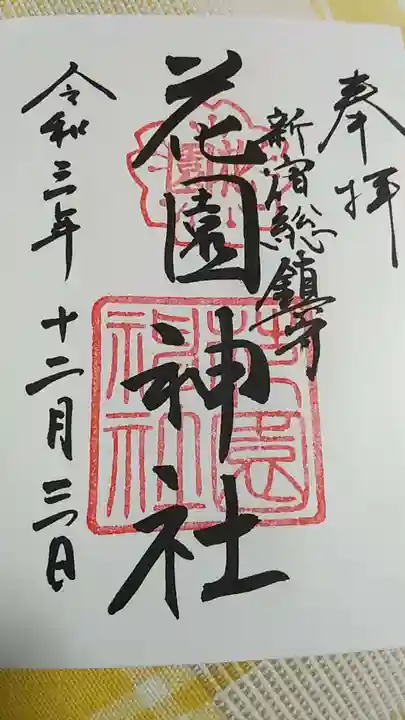 奉拝
新宿総鎮守
花園神社
花園神社
令和三年十二月三日